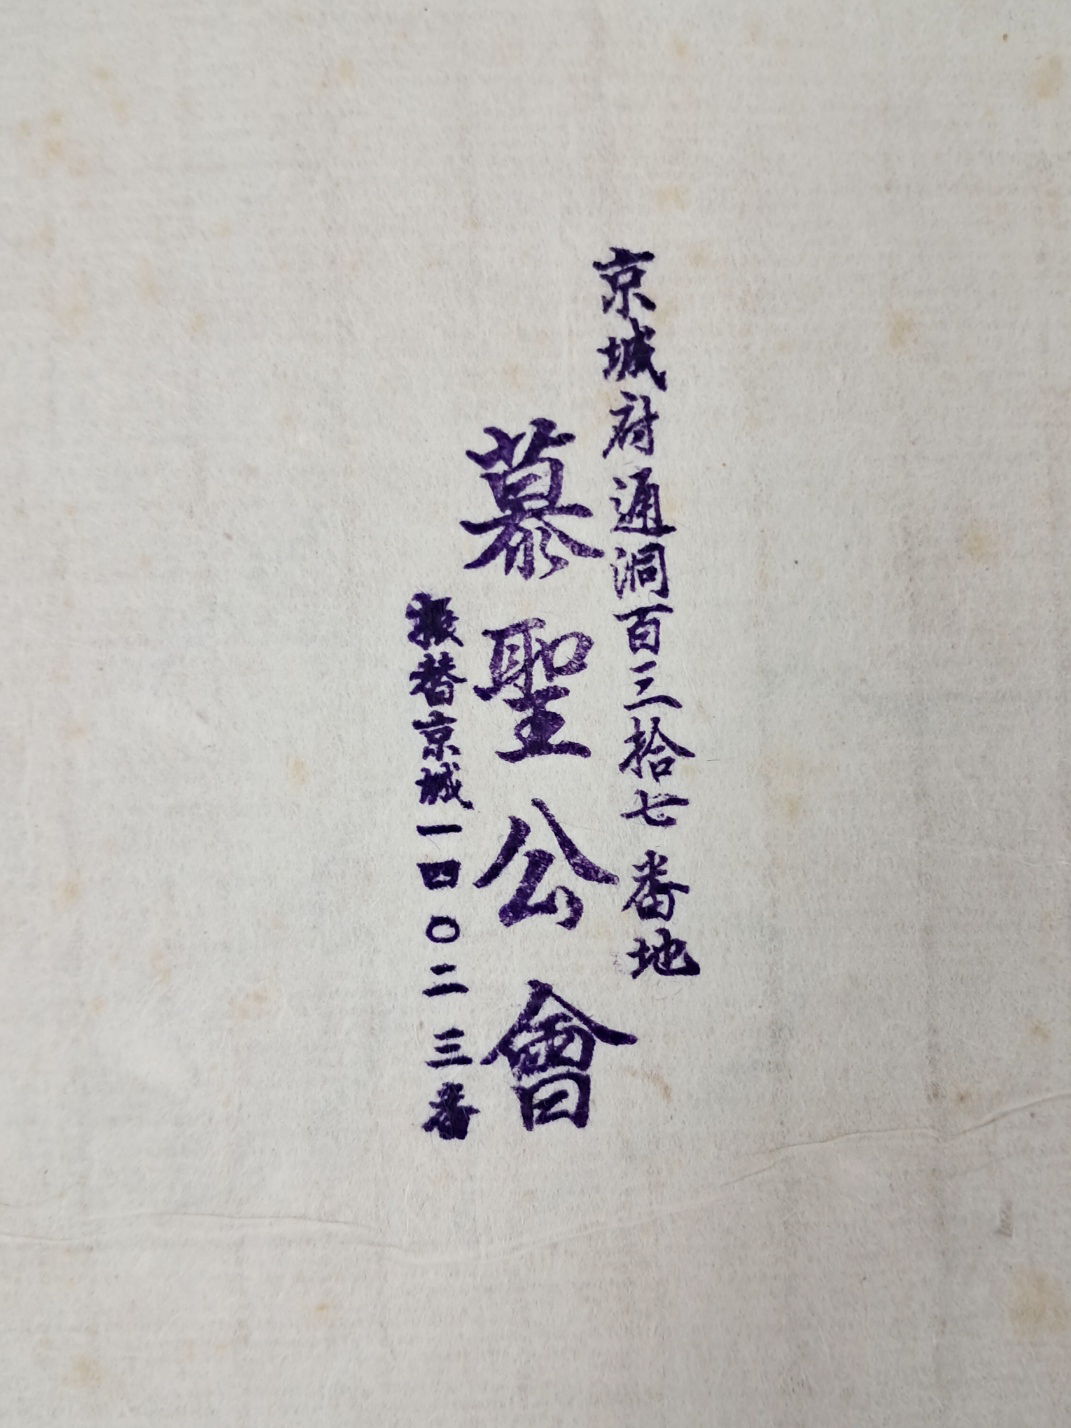 京城府通洞百三拾七番地
慕聖公會
振替京城一四〇二三番